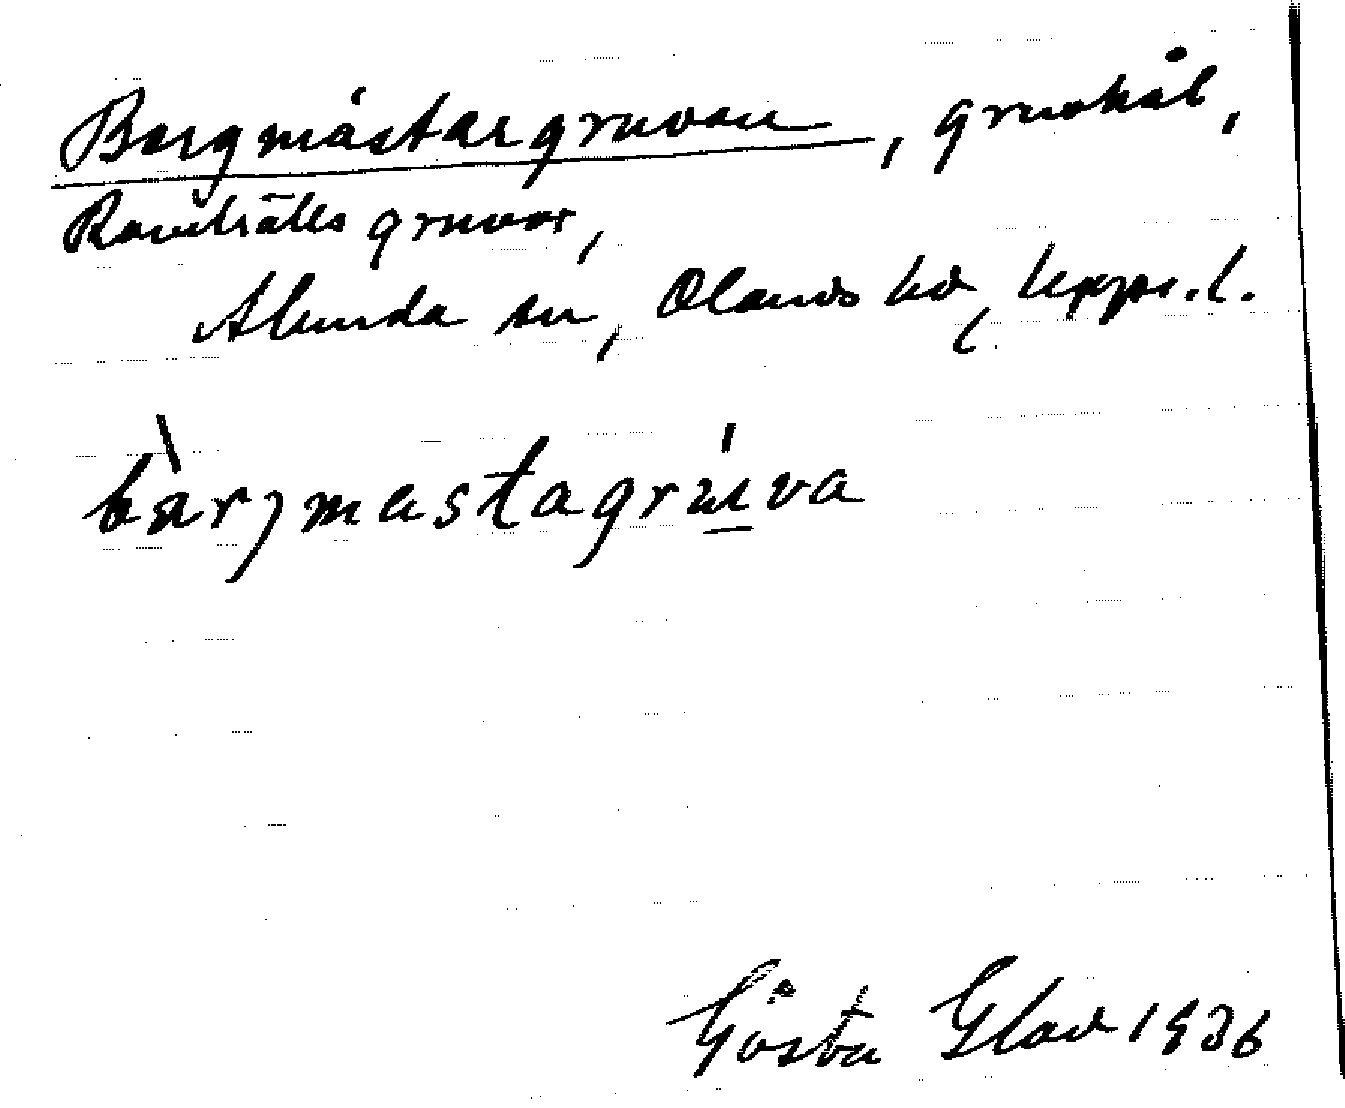 Bergmästargruvan, gruvhål,
Ramhälls gruvor,
Alunda sn, Olands hd, Upps. l.
bàrjmastagrúva
Gösta Glad 1936